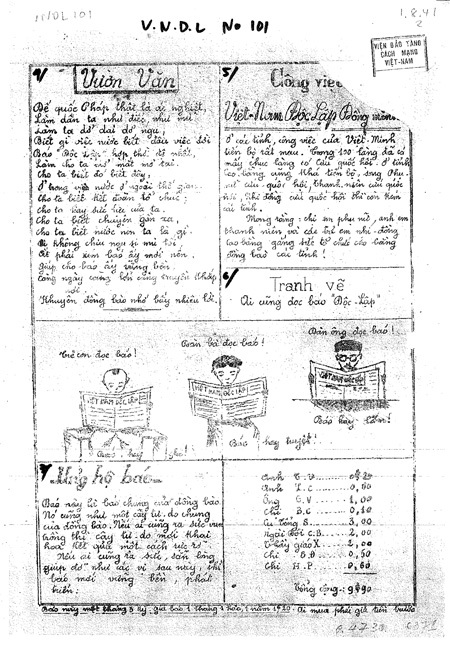 V.N.D.L No 101
1.8.41
VIỆN BẢO TÀNG
CÁCH MẠNG
VIỆT-NAM
4/ Vườn Văn
Đế quốc Pháp thật là ác nghiệt,
Làm dân ta như điếc, như mù
Làm ta dở dại dở ngu,
Biết gì việc nước biết đâu việc đời
Báo "Độc Lập" hợp thời đệ nhất,
Làm cho ta mở mắt mở tai
Cho ta biết đó biết đây,
Ở trong việc nước ở ngoài thế gian.
Cho ta biết kết đoàn tổ chức;
Cho ta hay sức lực của ta.
Cho ta biết chuyện gần xa,
Cho ta biết nước non ta là gì.
Ai không chịu ngu si mù tối,
Ắt phải xem báo ấy mới nên.
Giúp cho báo ấy vững bền
Càng ngày càng lớn càng truyền khắp
nơi
Khuyên đồng bào nhớ bấy nhiêu lời.
5/ Công việc
Việt-Nam Độc Lập Đồng minh
Ở các tỉnh, công việc của Việt-Minh
tiến bộ rất mau. Trong 100 làng đã có
mấy chục làng có
Cao bằng cũng khá tiến bộ, song Phụ-
nữ cứu quốc hội, thanh niên cứu quốc
hội, Nhi đồng cứu quốc hội thì còn kém
các tỉnh.
Mong rằng: chị em phụ nữ, anh em
thanh niên và các trẻ em nhi-đồng
Cao bằng gắng sức tổ chức cho bằng
đồng bào các tỉnh!
6/ Tranh vẽ
Ai cũng đọc báo "Độc-Lập"
Trẻ con đọc báo!
Đàn bà đọc báo!
Đàn ông đọc báo!
VIỆT NAM ĐỘC LẬP
VIỆT NAM ĐỘC LẬP
VIỆT NAM ĐỘC LẬP
Báo hay tuyệt!
Báo hay lắm!
7/ Ủng hộ báo
Báo này là báo chung của đồng bào
Nó cũng như một cây tự-do chung
của đồng bào. Nếu ai cũng ra sức vun
trồng thì cây tự-do mới khai
hoa kết quả một cách rực rỡ
Nếu ai cũng ra sức, sẵn lòng
giúp đỡ như các vị sau này, thì
báo mới vững bền phát
triển.
Anh T.V
Anh L.C 0,50
Ông G.V 1,00
Chị B.C 0,10
Cụ Tổng S. 3,00
Ngài Đội C.B 2,00
Thầy giáo X. 2,00
Chị O.Đ 0,50
Chị H.P. 0,60
Tổng cộng: 9$90
Báo này một tháng 3 kỳ, giá báo 1 tháng 1 hào, 1 năm 1$20. Ai mua phải giả tiền trước